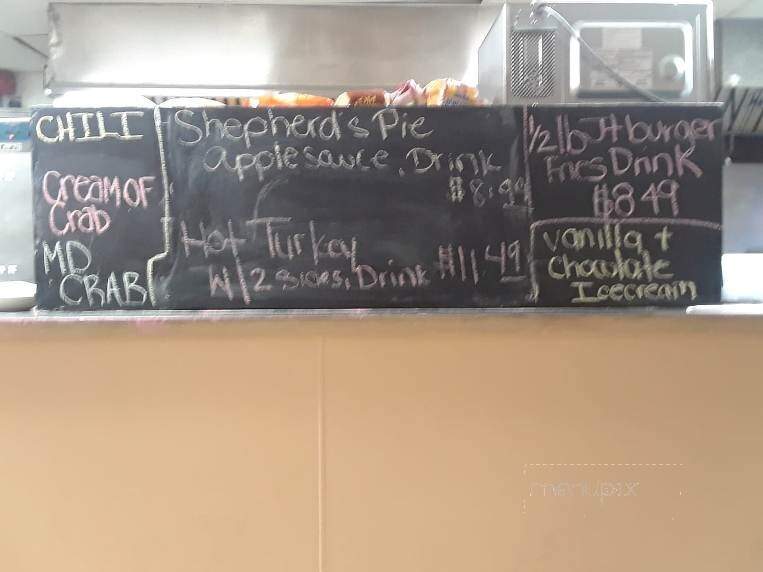 CHILI
Cream OF
Crab
MD
CRAB
Shepherd's Pie
applesauce, Drink
$8.99
Hot Turkey
W/ 2 sides, Drink $11.49
1/2 lb Jt burger
Fries Drink
$8.49
Vanilla +
Chocolate
Icecream
menupix